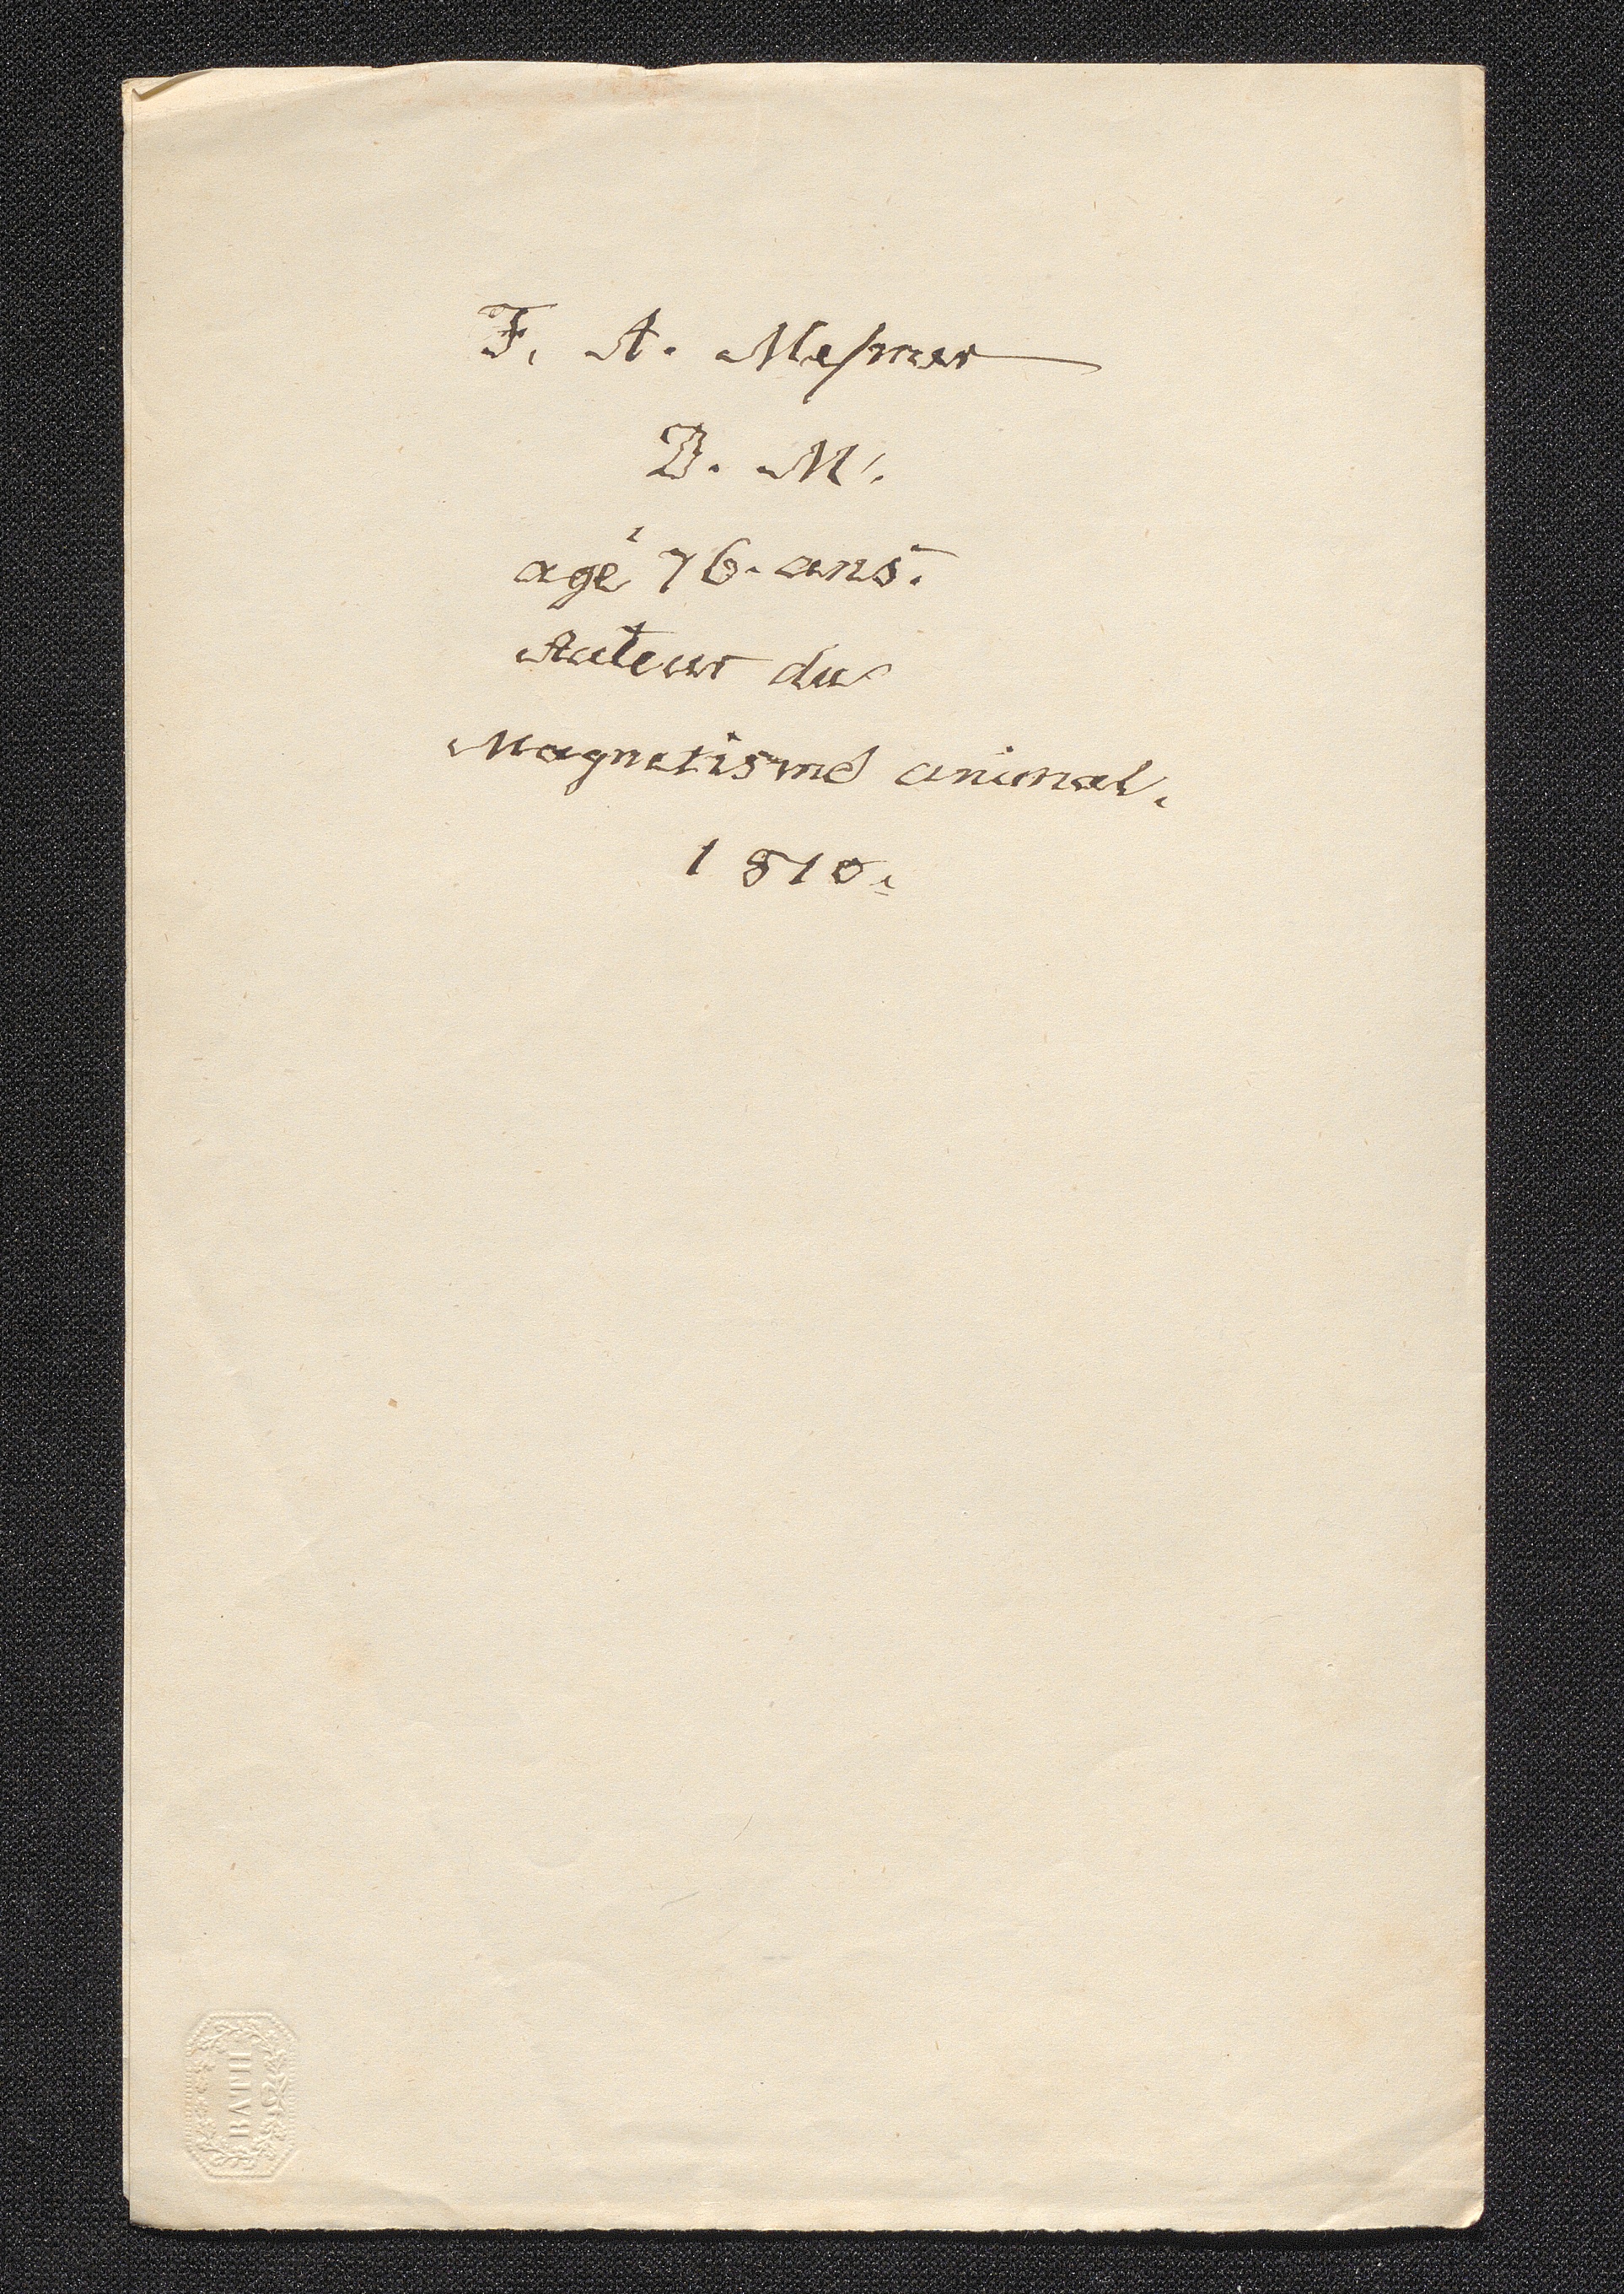 F. A. Meſmer
D. M.
agé 76. ans.
Auteur du
Magnetisme animal.
1810.
BATH